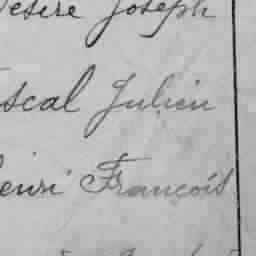 Désiré Joseph
Pascal Julien
Henri François